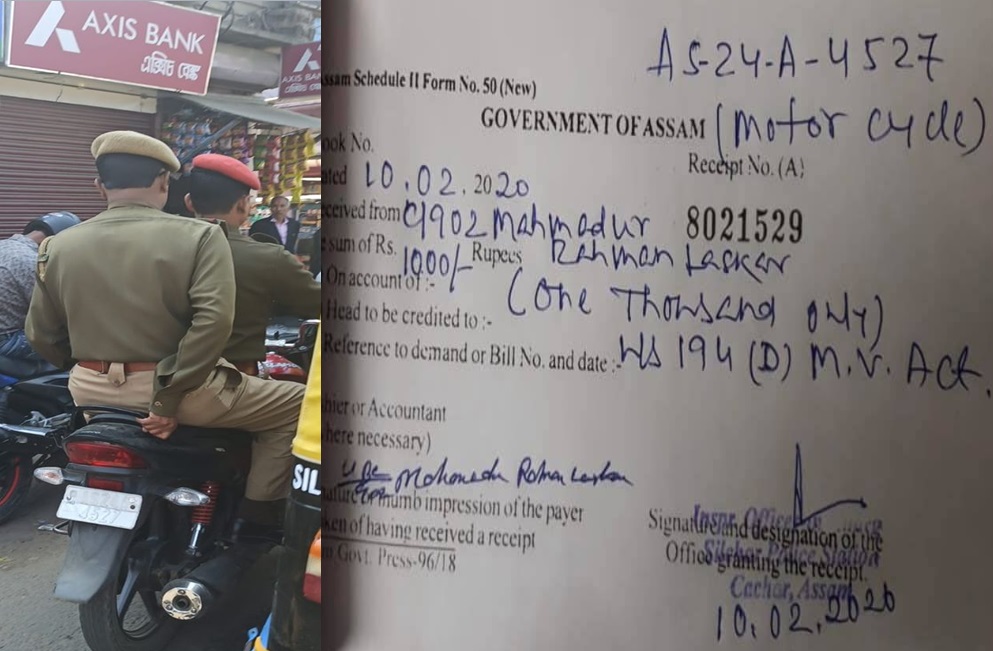 AXIS BANK
এক্সিস বেংক
AXIS
BAN
4527
SIL
AS-24-A-4527
ssam Schedule II Form No. 50 (New)
GOVERNMENT OF ASSAM
(Motor cycle)
ook No.
Receipt No. (A)
ated 10.02.2020
8021529
eceived from C/902 Mahmadur
Rahman Laskar
e sum of Rs. 1000/- Rupees
(One Thousand only)
On account of :-
Head to be credited to :-
Reference to demand or Bill No. and date :- U/S 194 (D) M.V. Act.
hier or Accountant
here necessary)
nature/Thumb impression of the payer
ken of having received a receipt
m Govt. Press-96/18
Signature and designation of the
Officer granting the receipt.
Silchar Police Station
Cachar, Assam
10.02.2020